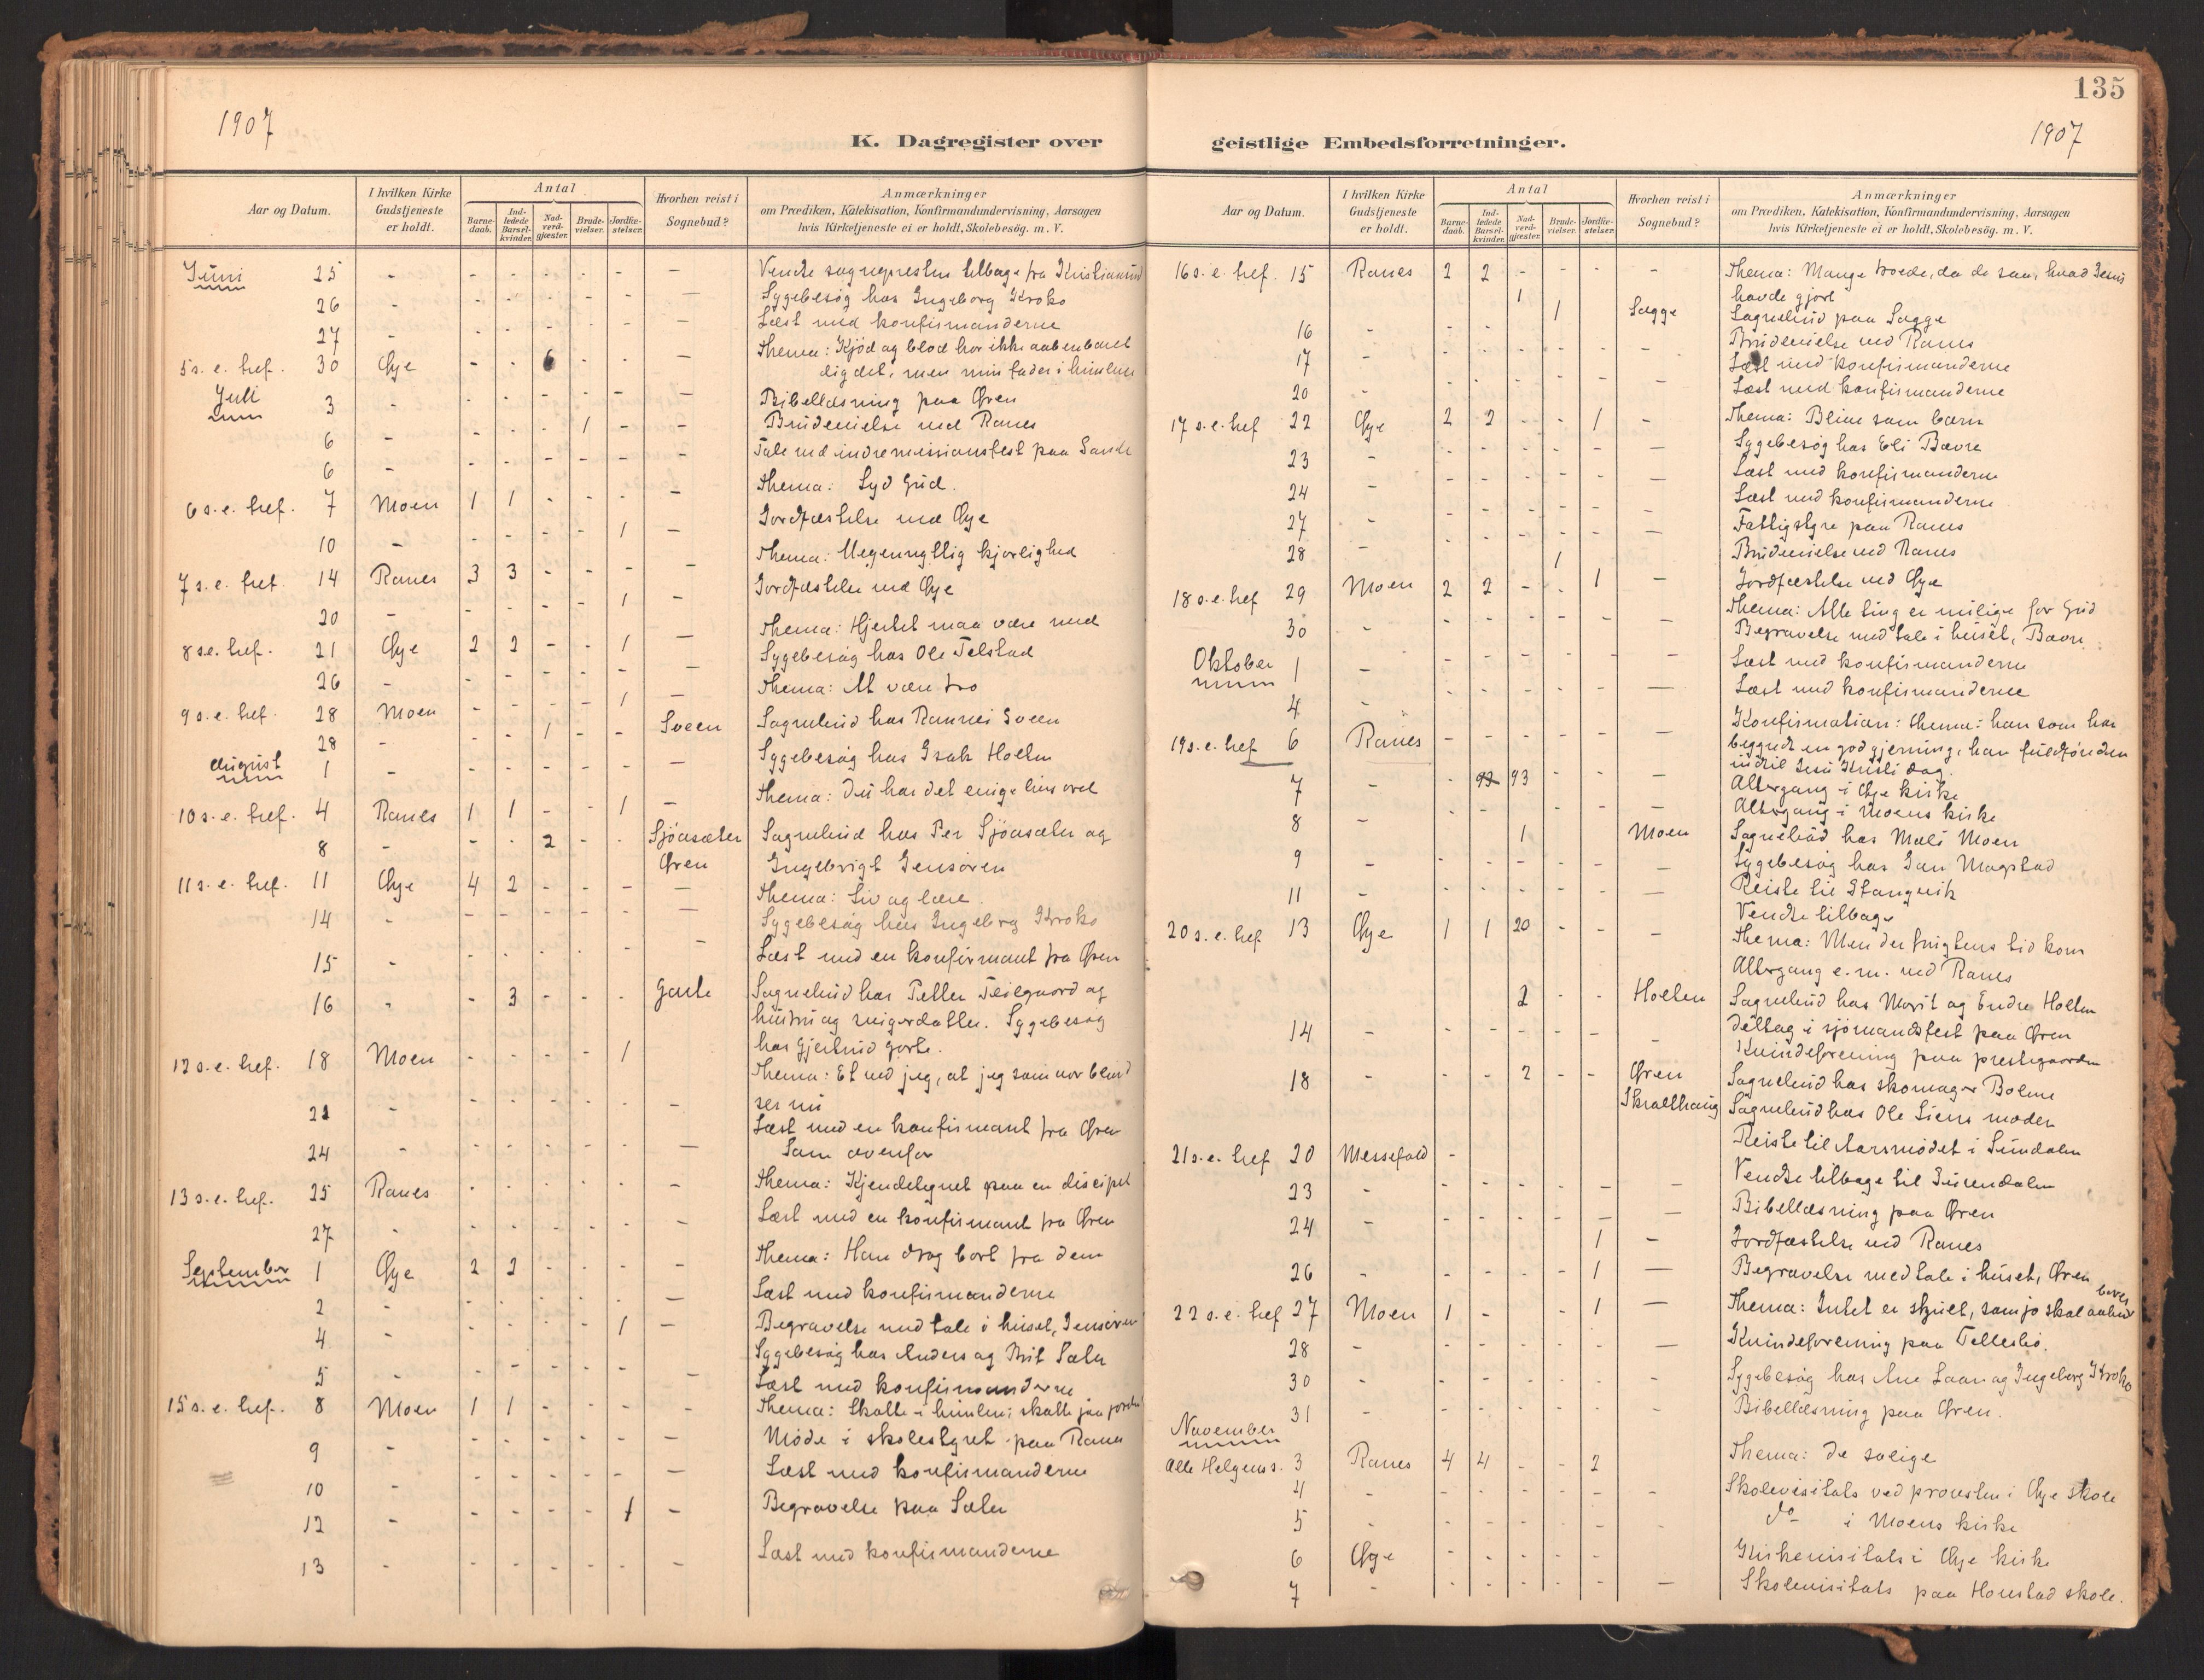 135
1907
1907
K. Dagregister over
geistlige Embedsforretninger.
Aar og Datum. I hvilken Kirke Gudstjeneste er holdt. Antal Barnedaab. Indledede Barselkvinder. Nadverdgjæster. Brudevielser. Jordfæstelser. Hvorhen reist i Sognebud? Anmærkninger om Prædiken, Katekisation, Konfirmandundervisning, Aarsagen hvis Kirketjeneste ei er holdt, Skolebesög. m. V.
Juni 25 - - - - - - - Vendte sognepresten tilbage fra Kristiansund
26 - - - - - - - Sygebesög hos Ingeborg Kroko
27 - - - - - - - Læst med konfirmanderne
5 s. e. tref. 30 Øye - - 6 - - - Thema: Kjöd og blod har ikke aabenbaret
dig det, men min fader i himlen
Juli 3 - - - - - - - Bibellæsning paa Øren
6 - - - - 1 - - Brudevielse ved Ranes
6 - - - - - - - Tale ved indremissionsfest paa Sande
6 s. e. tref. 7 Moen 1 1 - - - - Thema: Lyd Gud.
10 - 1 - Jordfæstelse ved Øye
7 s. e. tref. 14 Ranes 3 3 - - - - Thema: Uegennyttig kjærlighed
20 - 1 - Jordfæstelse ved Øye
8 s. e. tref. 21 Øye 2 2 - - 1 - Thema: Hjertet maa være med
26 - - - - - - Sygebesög hos Ole Telstad
9 s. e. tref. 28 Moen - - - - 1 - Thema: At være tro
28 - - - 1 - - Sveen Sognebud hos Rannei Sveen
August 1 - - - - - - Sygebesög hos Isak Holten
10 s. e. tref. 4 Ranes 1 1 - - 1 - Thema: Du har det evige livs ord
8 - - - 2 - - Sjöasæter Sognebud hos Per Sjöasæter og
Øren Ingebrigt Jensören
11 s. e. tref. 11 Øye 4 2 - - - - Thema: Liv og lære.
14 - - - - - - Sygebesög hos Ingeborg Kroko
15 - - - - - - Læst med en konfirmant fra Øren
16 - - 3 - - - Garte Sognebud hos Petter Teilgaard og
hustru og svigerdatter. Sygebesög
hos Gjertrud Garte.
12 s. e. tref. 18 Moen - - - - 1 Thema: Et ved jeg, at jeg som var blind
ser nu
21 - - - - - - Læst med en konfirmant fra Øren
24 - - - - - - Som ovenfor
13 s. e. tref. 25 Ranes - - - - - - Thema: Kjendetegnet paa en discipel
27 - - - - - - Læst med en konfirmant fra Øren
September 1 Øye 2 2 - - - - Thema: Han drog bort fra dem
2 - - - - - - Læst med konfirmanderne
4 - - - - - 1 - Begravelse med tale i huset, Jensören
5 - - - - - - Sygebesög hos Anders og Brit Sæter
Læst med konfirmanderne
15 s. e. tref. 8 Moen 1 1 - - - - Thema: Skatte i himlen; skatte paa jorden
9 - - - - - - Möde i skolestyret paa Ranes
10 - - - - - - Læst med konfirmanderne
12 - - - - - 1 - Begravelse paa Sæter
13 - - - - - - Læst med konfirmanderne
Aar og Datum. I hvilken Kirke Gudstjeneste er holdt. Antal Barnedaab. Indledede Barselkvinder. Nadverdgjæster. Brudevielser. Jordfæstelser. Hvorhen reist i Sognebud? Anmærkninger om Prædiken, Katekisation, Konfirmandundervisning, Aarsagen hvis Kirketjeneste ei er holdt, Skolebesög. m. V.
16 s. e. tref. 15 Ranes 2 2 - - - - Thema: Mange troede, da de saa, hvad Jesus
havde gjort
1 Sagge Sognebud paa Sagge
16 - - - 1 Brudevielse ved Ranes
17 - - - - - - Læst med konfirmanderne
20 - - - - - - Læst med konfirmanderne
17 s. e. tref 22 Øye 2 2 - - 1 - Thema: Blive som barn
23 - - - - - - Sygebesög hos Eli Bævre
24 - - - - - - Læst med konfirmanderne
27 - - - - - - Læst med konfirmanderne
28 - - - - - - Fattigstyre paa Ranes
1 Brudevielse ved Ranes
18 s. e. tref 29 Moen 2 2 - - 1 - Jordfæstelse ved Øye
Thema: Alle ting er mulige for Gud
30 - - - - - - Begravelse med tale i huset, Bævre
Oktober 1 - - - - - - Læst med konfirmanderne
4 - - - - - - Læst med konfirmanderne
19 s. e. tref 6 Ranes - - - - - - Konfirmation: thema: han som har
begyndt en god gjerning, han fuldförer den
indtil Jesu Kristi dag.
7 - - 93 93 - Altergang i Øye kirke
8 - - - - - Altergang i Moens kirke
1 Moen Sognebud hos Mali Moen
9 - - - - - - Sygebesög hos Jan Mogstad
11 - - - - - - Reiste til Stangvik
Vendte tilbage
20 s. e. tref 13 Øye 1 1 20 - - - Thema: Men der frugtens tid kom
Altergang e. m. ved Ranes
2 - - Holten Sognebud hos Marit og Endre Holten
14 - - - - - - Deltog i sjömandsfest paa Øren
Kvindeforening paa prestegaarden
18 - - - 2 - - Øren Sognebud hos skomager Bolme
Skralthaug Sognebud hos Ole Liens moder
Reiste til Aarsmödet i Sundalen
21 s. e. tref 20 Messefald -
23 - - - - - - Vendte tilbage til Surendalen
24 - - - - - - Bibellæsning paa Øren
1 - Jordfæstelse ved Ranes
26 - - - - - 1 - Begravelse med tale i huset, Øren
22 s. e. tref 27 Moen 1 - - 1 - Thema: Intet er skjult, som jo skal aabenbares
28 - - - - - - Kvindeforening paa Tellesbö.
30 - - - - - - Sygebesög hos Ane Laan og Ingeborg Kroko
31 - - - - - - Bibellæsning paa Øren.
November
Alle Helgens. 3 Ranes 4 4 - - 2 Thema: De salige
4 - - - - - - Skolevisitats ved provsten i Øye skole
5 - - - - - - do i Moens kirke
6 Øye - - - - - Kirkevisitats i Øye kirke
7 - - - - - - Skolevisitats paa Honstad skole.